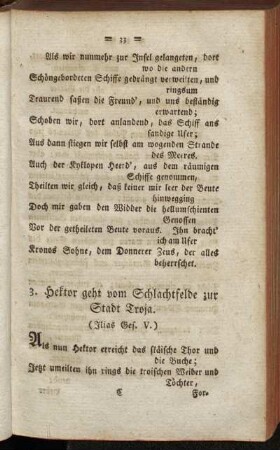 = 33 =
Als wir nunmehr zur Insel gelangeten, dort
wo die andern
Schöngebordeten Schiffe gedrängt verweilten, und
ringsum
Traurend saßen die Freund', und uns beständig
erwartend;
Schoben wir, dort anlandend, das Schiff ans
sandige Ufer;
Aus dann stiegen wir selbst am wogenden Strande
des Meeres.
Auch der Kyklopen Heerd', aus dem räumigen
Schiffe genommen,
Theilten wir gleich, daß keiner mir leer der Beute
hinwegging
Doch mir gaben den Widder die hellumschienten
Genossen
Vor der getheileten Beute voraus. Ihn bracht'
ich am Ufer
Kronos Sohne, dem Donnerer Zeus, der alles
beherrschet.
3. Hektor geht vom Schlachtfelde zur
Stadt Troja.
(Ilias Ges. V.)
Als nun Hektor erreicht das skäische Thor und
die Buche;
Jetzt umeilten ihn rings die troischen Weiber und
Töchter,
C For-